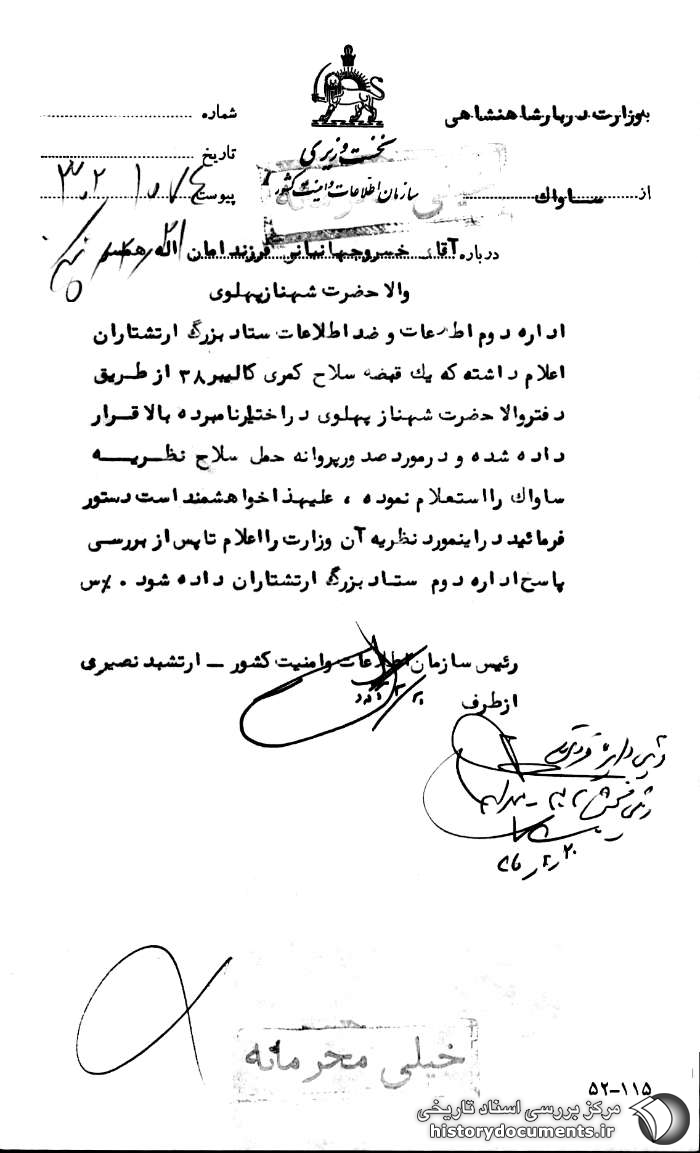 به وزارت دربار شاهنشاهی
شماره
نخست وزیری
تاریخ
سازمان اطلاعات و امنیت کشور
از ساواک
پیوست
درباره آقای خسرو جهانبانی فرزند امان اله همسر
والا حضرت شهناز پهلوی
اداره دوم اطلاعات و ضد اطلاعات ستاد بزرگ ارتشتاران
اعلام داشته که یک قبضه سلاح کمری کالیبر ۳۸ از طریق
دفتر والا حضرت شهناز پهلوی در اختیار نامبرده بالا قرار
داده شده و در مورد صدور پروانه حمل سلاح نظریه
ساواک را استعلام نموده ، علیهذا خواهشمند است دستور
فرمائید در اینمورد نظریه آن وزارت را اعلام تا پس از بررسی
پاسخ اداره دوم ستاد بزرگ ارتشتاران داده شود .
رئیس سازمان اطلاعات و امنیت کشور – ارتشبد نصیری
از طرف
خیلی محرمانه
۵۲-۱۱۵
مرکز بررسی اسناد تاریخی
historydocuments.ir